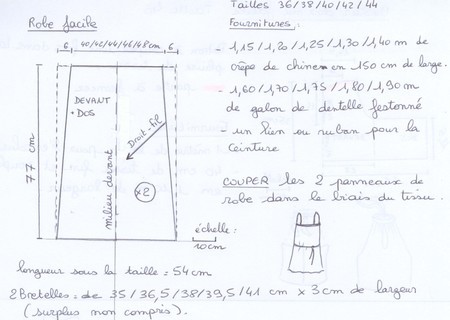 Tailles 36/38/40/42/44
Robe facile
Fournitures.
6 40/42/44/46/48cm 6
- 1,15/1,20/1,25/1,30/1,40 m de
crêpe de chine en 150 cm de large.
- 1,60/1,70/1,75/1,80/1,90 m
de galon de dentelle festonné
- un lien ou ruban pour la
ceinture
DEVANT
+ DOS
Droit-fil
77 cm
milieu devant
x2
COUPER les 2 panneaux de
robe dans le biais du tissu.
échelle:
10cm
longueur sous la taille = 54cm
2 Bretelles = de 35/36,5/38/39,5/41 cm x 3cm de largeur
(surplus non compris).